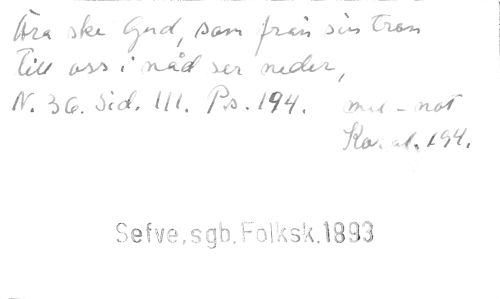 Ära ske Gud, som från sin tron
Till oss i nåd ser neder,
N. 36. Sid. 111. Ps. 194. mel-not
Koral. 194.
Sefve, sgb. Folksk. 1893